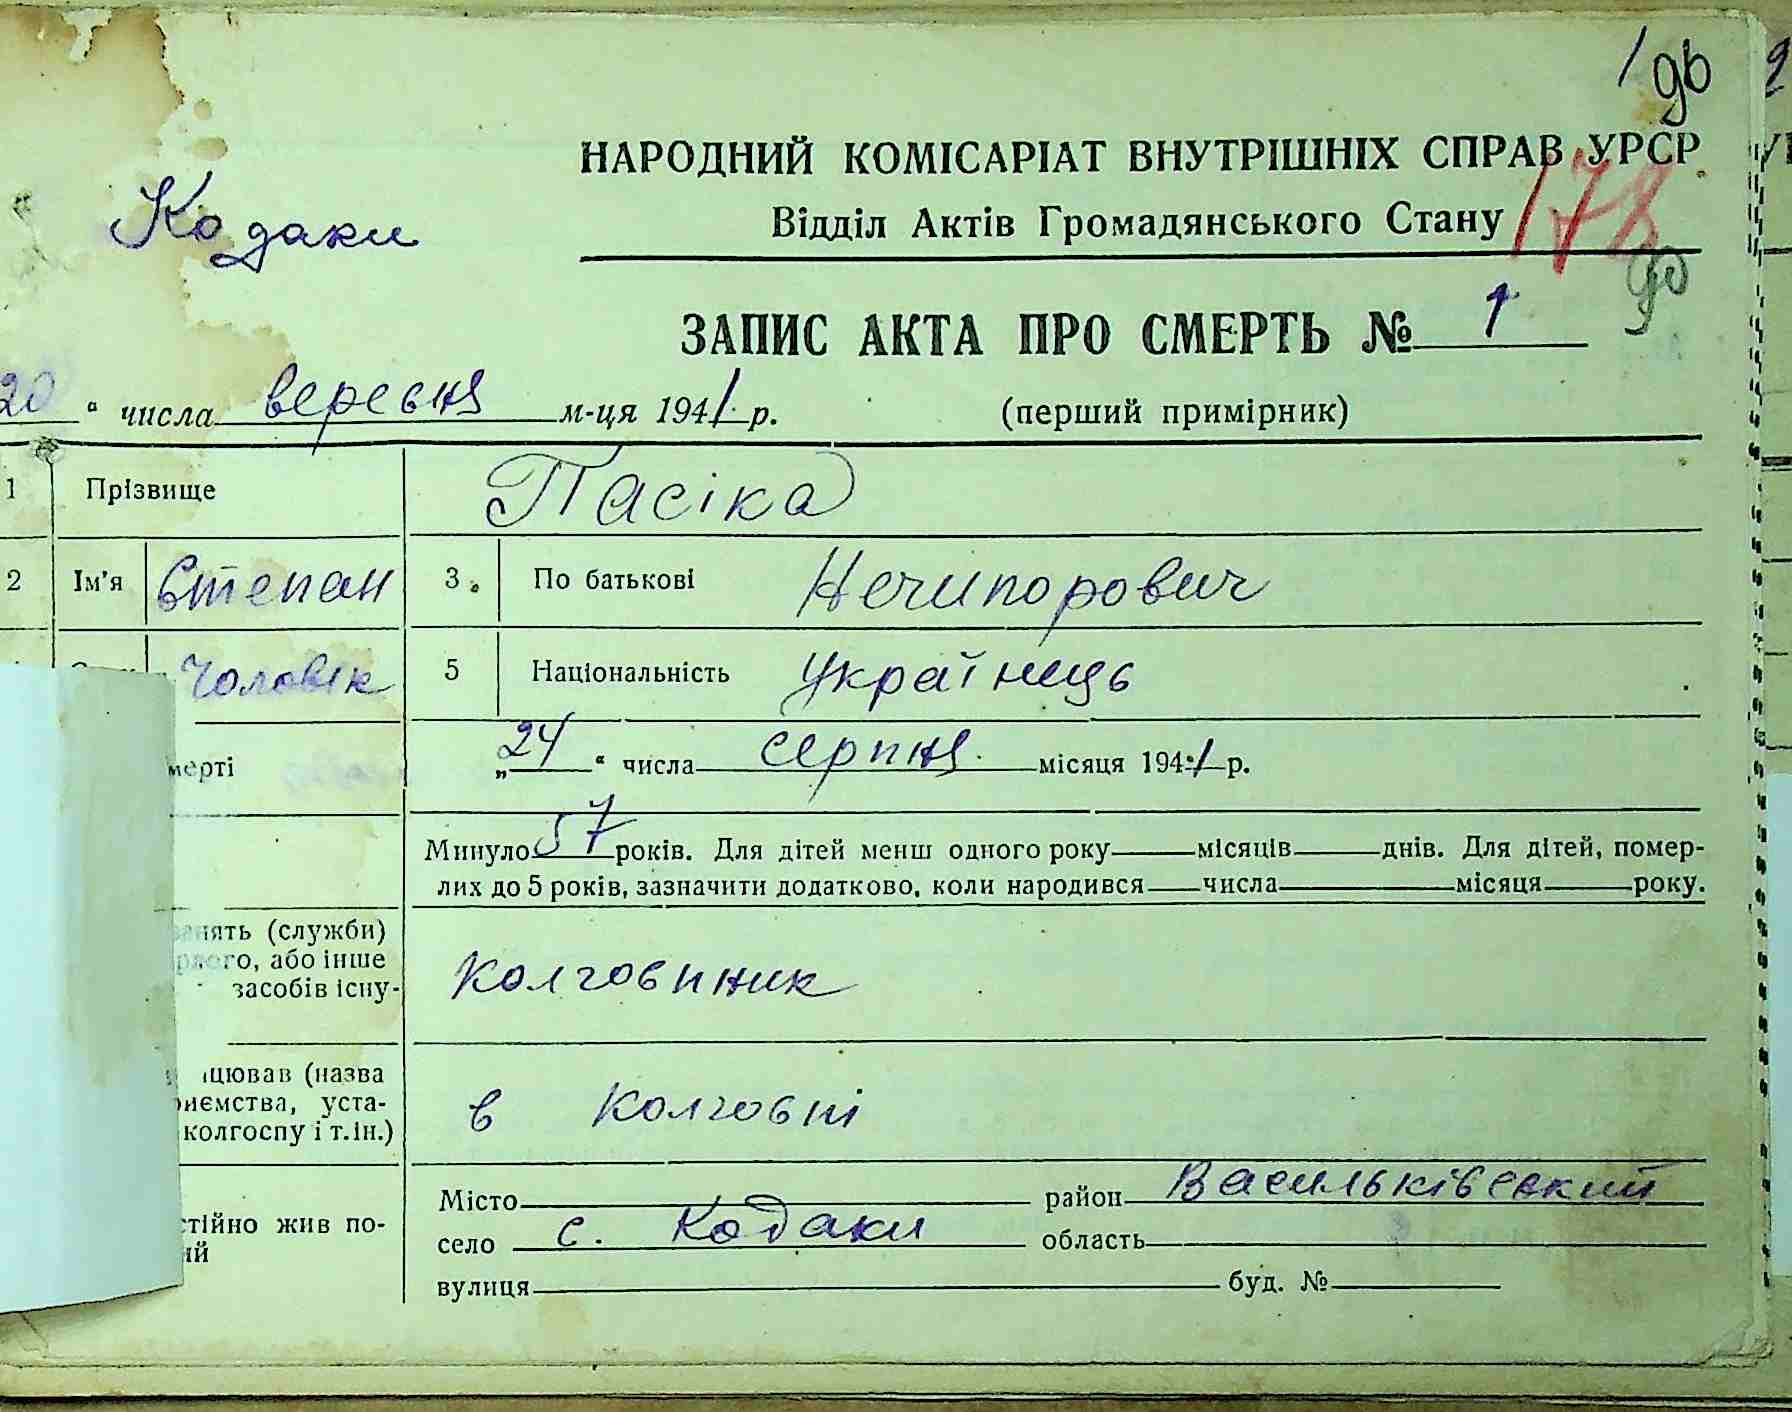 196
НАРОДНИЙ КОМІСАРІАТ ВНУТРІШНІХ СПРАВ УРСР
Кодаки
Відділ Актів Громадянського Стану
178
ЗАПИС АКТА ПРО СМЕРТЬ № 1
20 " числа вересня м-ця 1941 р. (перший примірник)
1 Прізвище Пасіка
2 Ім'я Степан 3. По батькові Нечипорович
Чоловік 5 Національність Українець
мерті „24" числа серпня місяця 1941 р.
Минуло 57 років. Для дітей менш одного року місяців днів. Для дітей, помер-
лих до 5 років, зазначити додатково, коли народився числа місяця року.
занять (служби)
рлого, або інше
засобів існу-
Колговпник
цював (назва
иємства, уста-
колгоспу і т.ін.)
в Колговпі
Місто район Васильківський
стійно жив по-
ий
село с. Кодаки область
вулиця буд. №